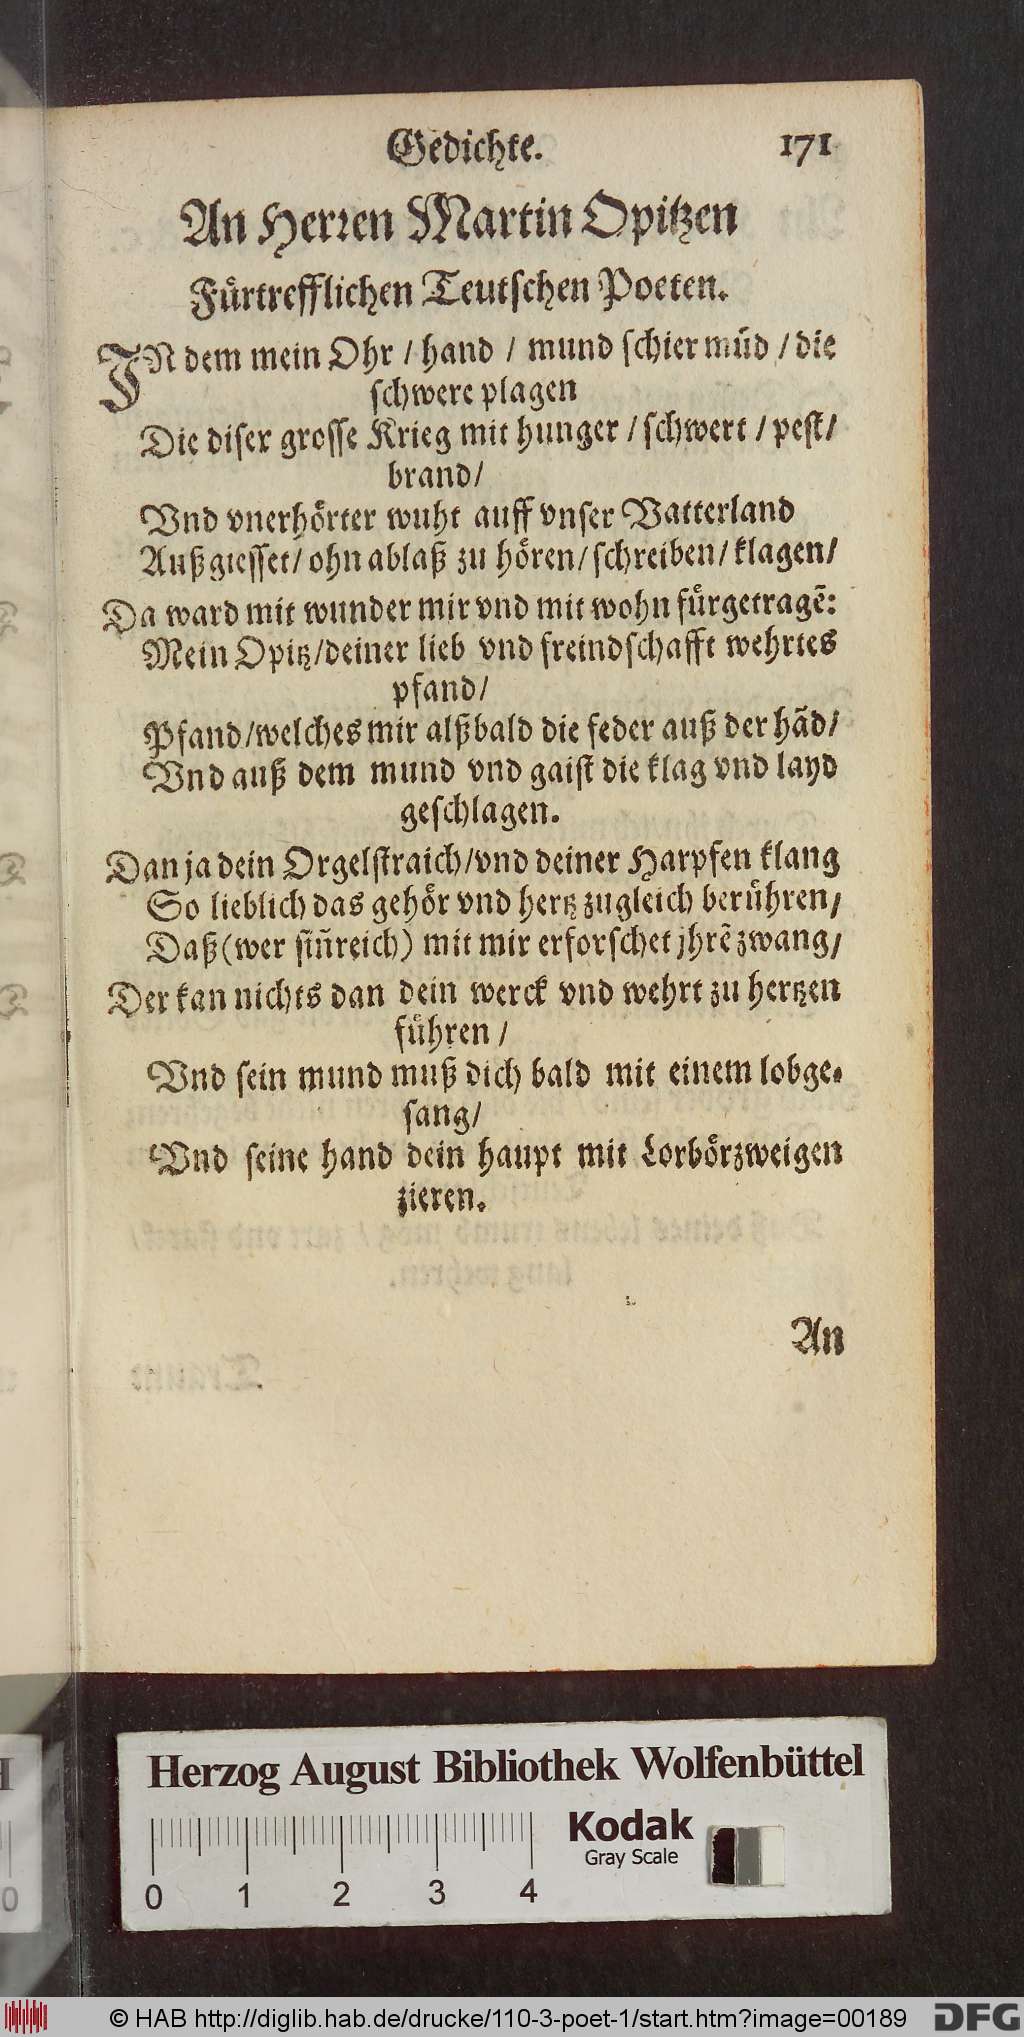 Gedichte. 171
An Herren Martin Opitzen
Fürtrefflichen Teutschen Poeten.
IN dem mein Ohr / hand / mund schier müd / die
schwere plagen
Die diser grosse Krieg mit hunger / schwert / pest/
brand/
Vnd vnerhörter wuht auff vnser Vatterland
Außgiesset/ ohn ablaß zu hören/ schreiben/ klagen/
Da ward mit wunder mir vnd mit wohn fürgetragẽ:
Mein Opitz/deiner lieb vnd freindschafft wehrtes
pfand/
Pfand/welches mir alßbald die feder auß der hãd/
Vnd auß dem mund vnd gaist die klag vnd layd
geschlagen.
Dan ja dein Orgelstraich/vnd deiner Harpfen klang
So lieblich das gehör vnd hertz zugleich berühren/
Daß (wer siñreich) mit mir erforschet jhrẽ zwang/
Der kan nichts dan dein werck vnd wehrt zu hertzen
führen /
Vnd sein mund muß dich bald mit einem lobge-
sang/
Vnd seine hand dein haupt mit Lorbörzweigen
zieren.
An
Herzog August Bibliothek Wolfenbüttel
Kodak
Gray Scale
0 1 2 3 4
© HAB http://diglib.hab.de/drucke/110-3-poet-1/start.htm?image=00189 DFG